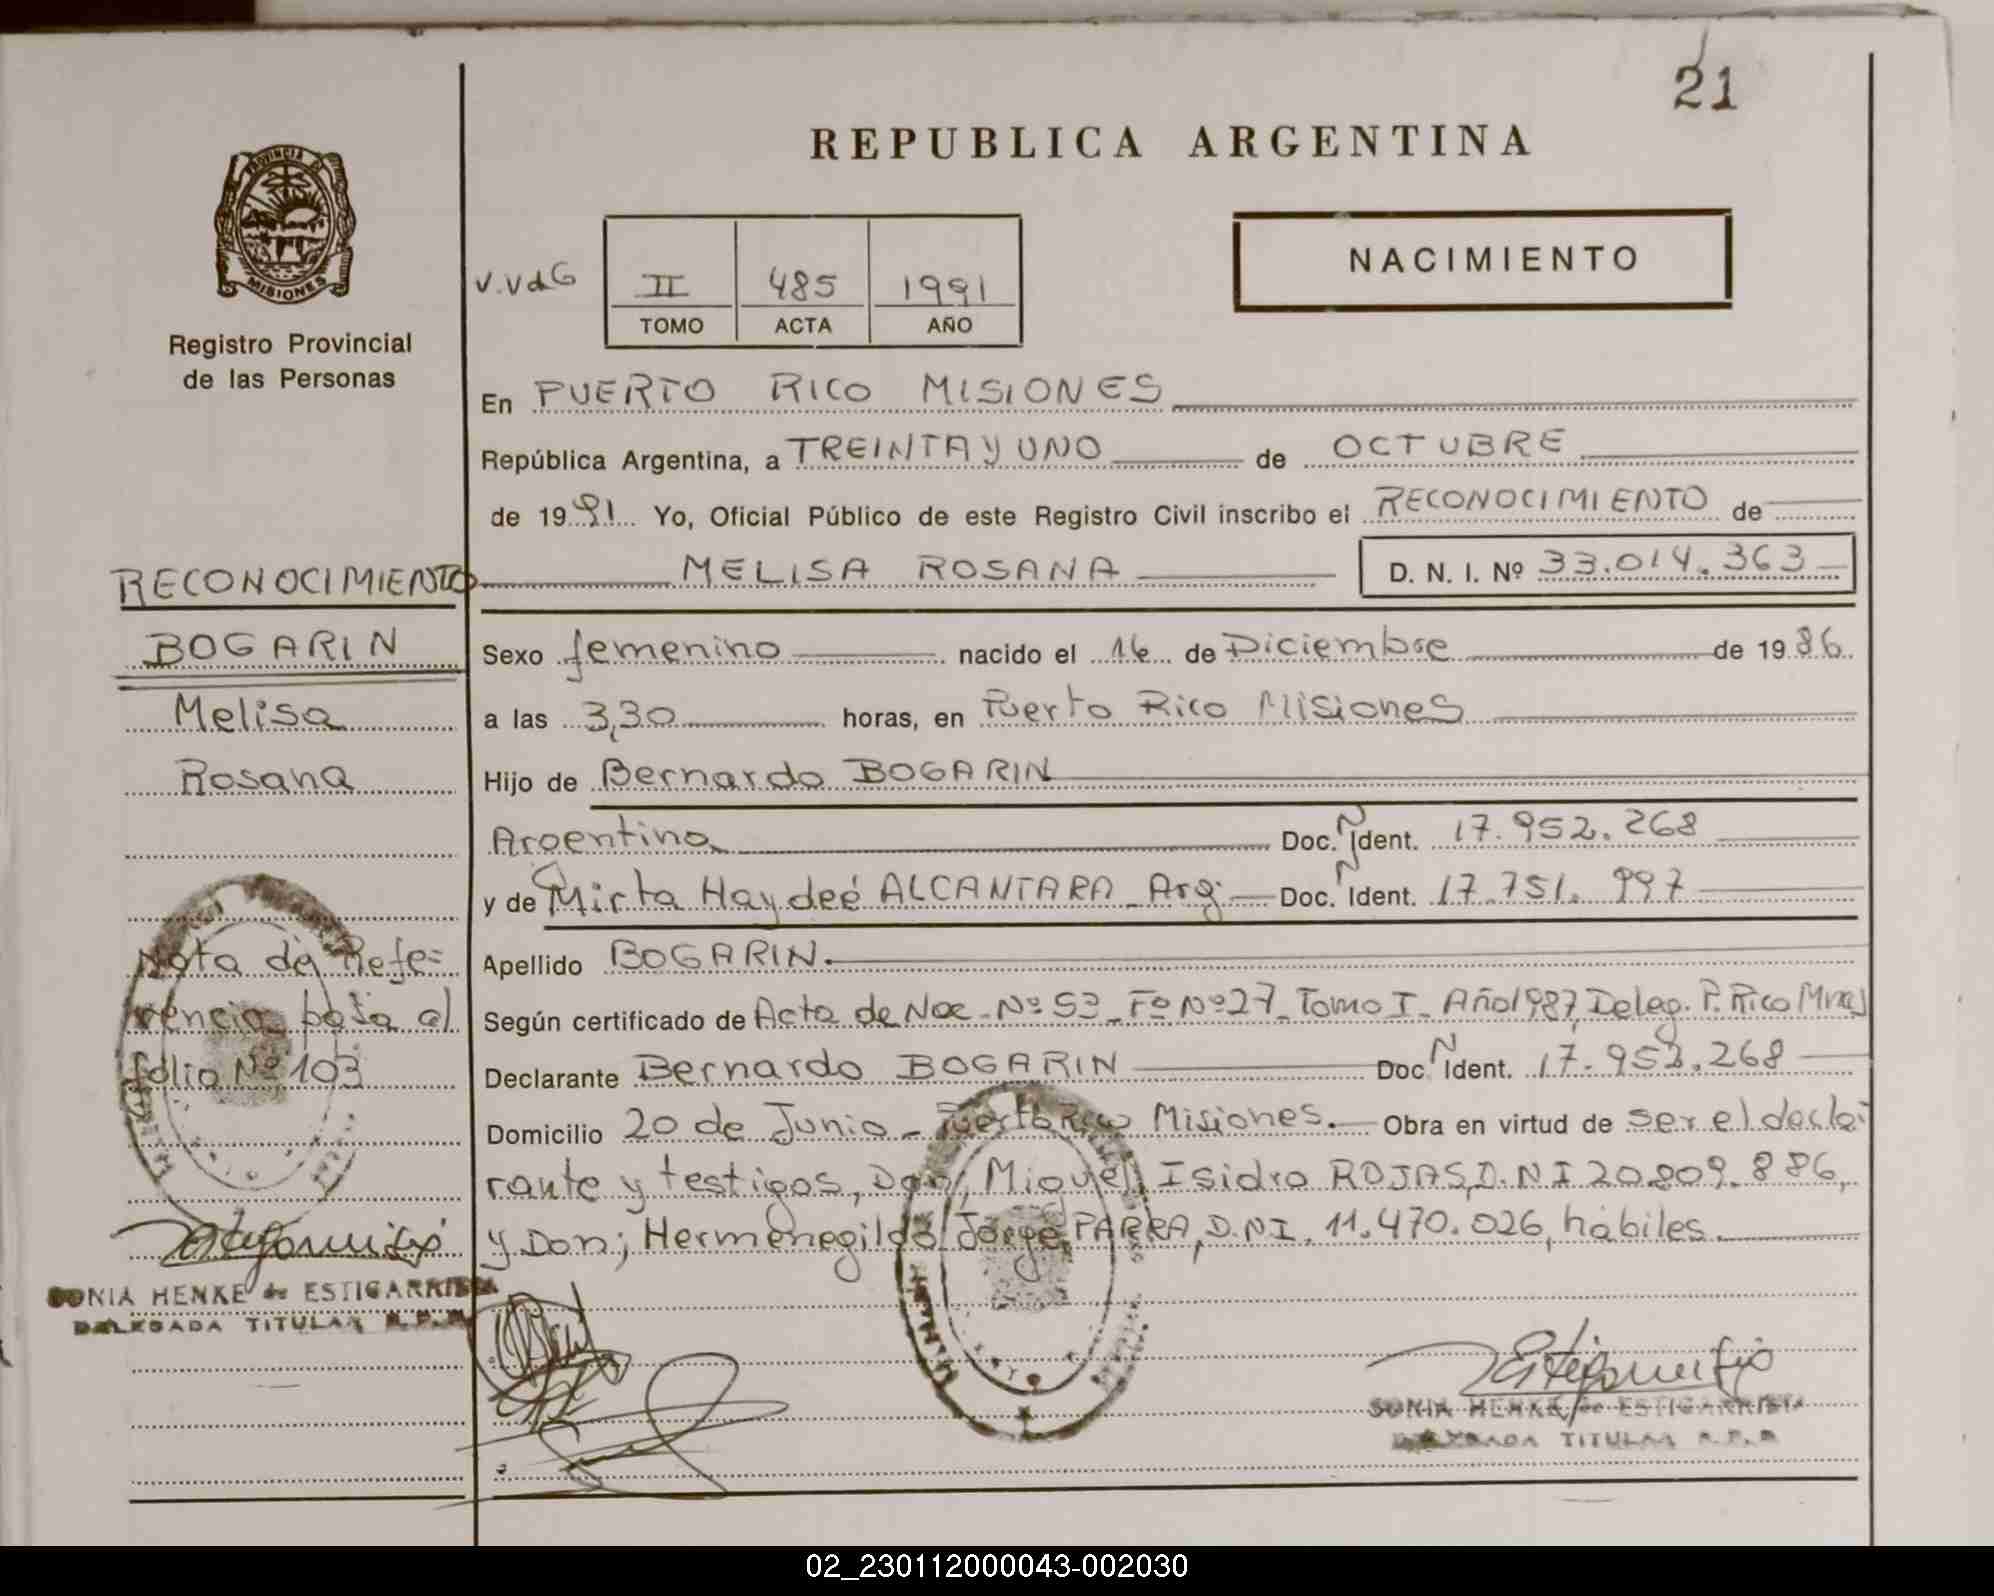 21
REPUBLICA ARGENTINA
PROVINCIA DE
MISIONES
Registro Provincial
de las Personas
V.VdG
II 485 1991
TOMO ACTA AÑO
NACIMIENTO
En PUERTO RICO MISIONES
República Argentina, a TREINTA Y UNO de OCTUBRE
de 1991 Yo, Oficial Público de este Registro Civil inscribo el RECONOCIMIENTO de
MELISA ROSANA D. N. I. Nº 33.014.363
RECONOCIMIENTO
BOGARIN
Melisa
Rosana
Nota de Refe=
rencia pasa al
folio Nº 103
SONIA HENKE de ESTIGARRIBIA
DELEGADA TITULAR R.P.P.
Sexo femenino nacido el 16 de Diciembre de 1986
a las 3,30 horas, en Puerto Rico Misiones
Hijo de Bernardo BOGARIN
Argentino Doc. N Ident. 17.952.268
y de Mirta Haydeé ALCANTARA - Arg. Doc. N Ident. 17.751.997
Apellido BOGARIN.
Según certificado de Acta de Nac. Nº 53 - Fº Nº 27 - Tomo I - Año 1987, Deleg. P. Rico Mnes
Declarante Bernardo BOGARIN Doc. N Ident. 17.952.268
Domicilio 20 de Junio - Puerto Rico Misiones. Obra en virtud de ser el decla=
rante y testigos, Don, Miguel Isidro ROJAS, D.N.I 20.809.886,
y Don; Hermenegildo Jorge PARRA, D.N.I. 11.470.026, hábiles.
SONIA HENKE de ESTIGARRIBIA
DELEGADA TITULAR R.P.P.
02_230112000043-002030